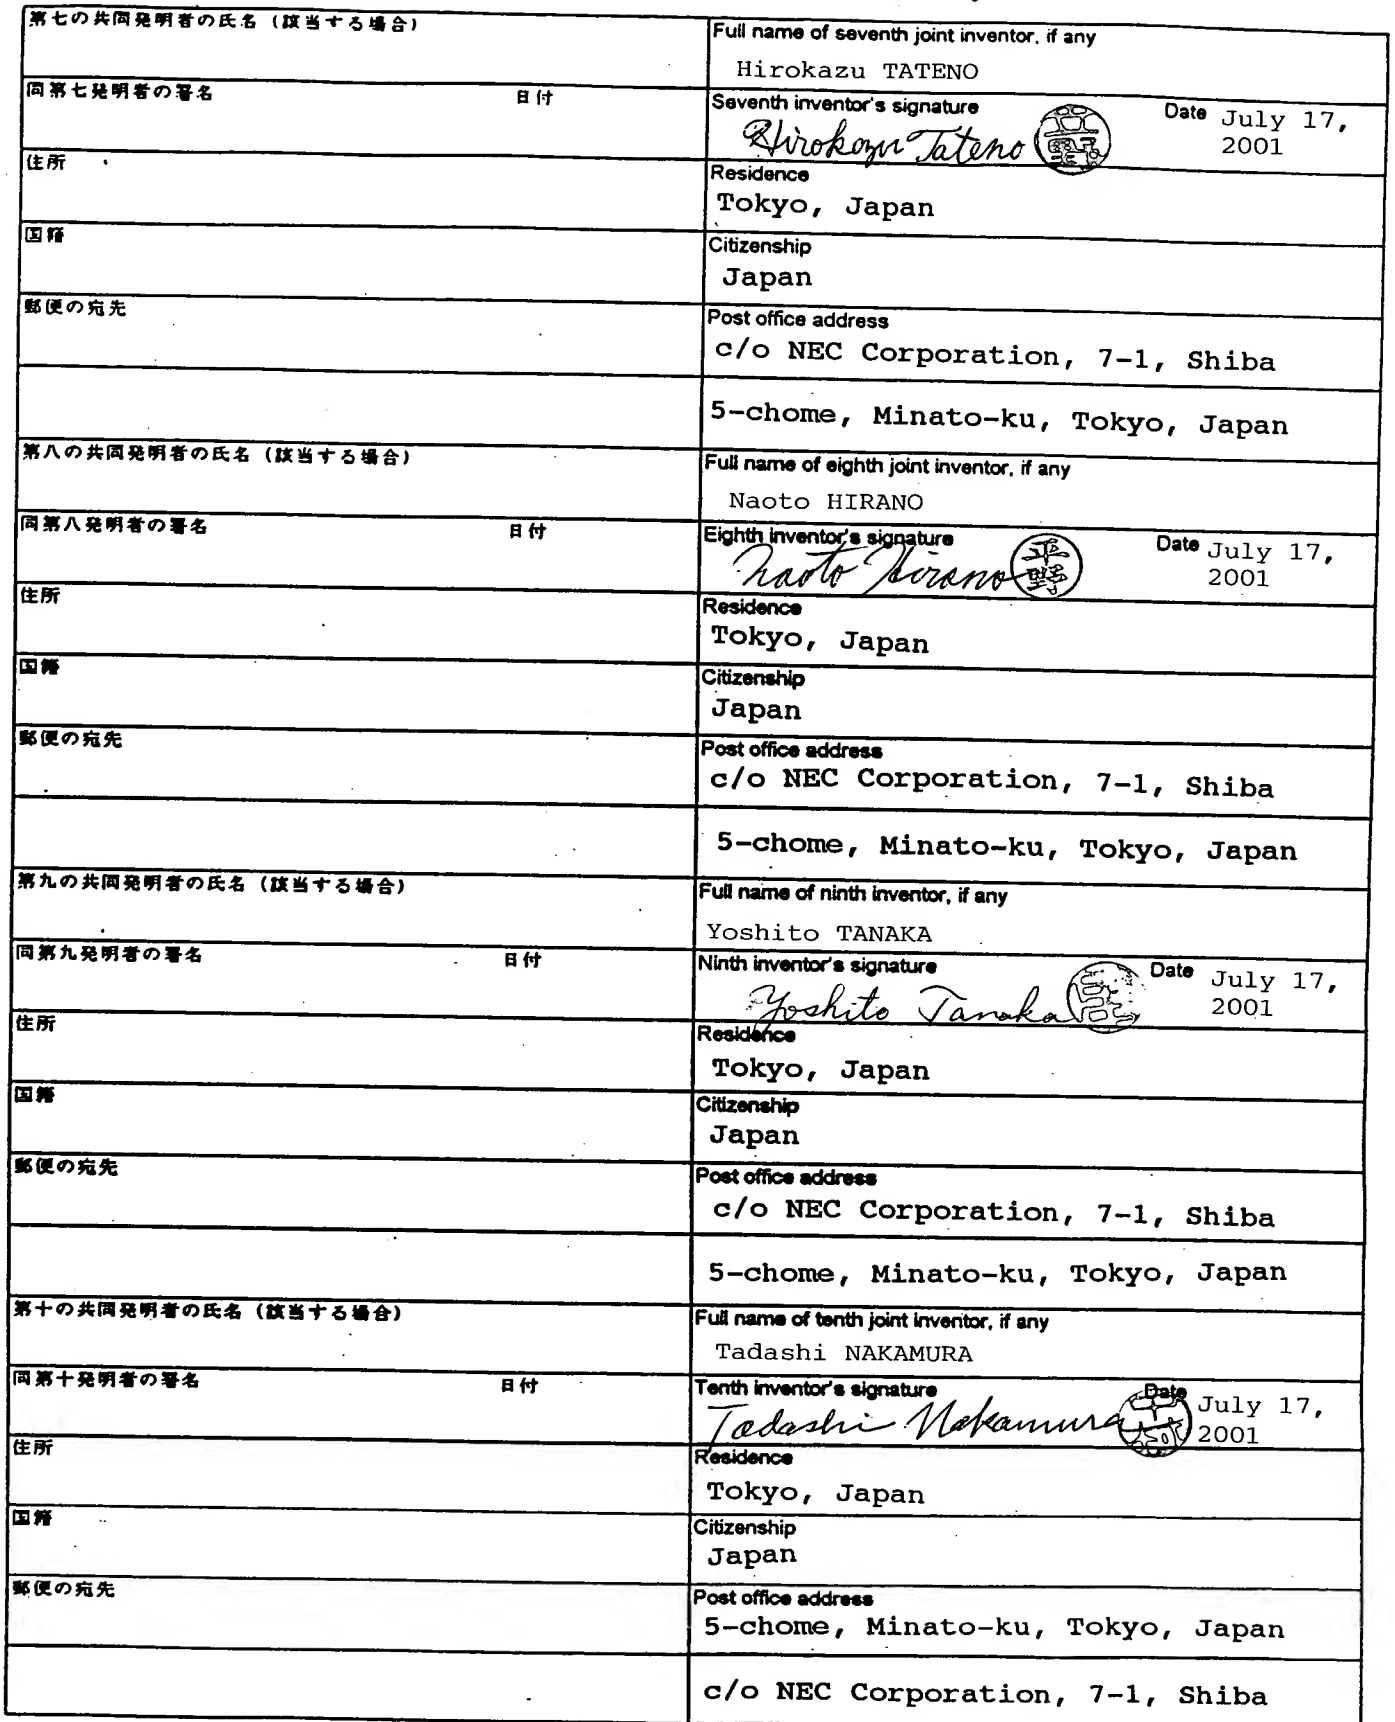 第七の共同発明者の氏名（該当する場合）
Full name of seventh joint inventor, if any
Hirokazu TATENO
同第七発明者の署名 日付
Seventh inventor's signature Date July 17,
Hirokazu Tateno 2001
住所
Residence
Tokyo, Japan
国籍
Citizenship
Japan
郵便の宛先
Post office address
c/o NEC Corporation, 7-1, Shiba
5-chome, Minato-ku, Tokyo, Japan
第八の共同発明者の氏名（該当する場合）
Full name of eighth joint inventor, if any
Naoto HIRANO
同第八発明者の署名 日付
Eighth inventor's signature Date July 17,
Naoto Hirano 平野 2001
住所
Residence
Tokyo, Japan
国籍
Citizenship
Japan
郵便の宛先
Post office address
c/o NEC Corporation, 7-1, Shiba
5-chome, Minato-ku, Tokyo, Japan
第九の共同発明者の氏名（該当する場合）
Full name of ninth inventor, if any
Yoshito TANAKA
同第九発明者の署名 日付
Ninth inventor's signature Date July 17,
Yoshito Tanaka 2001
住所
Residence
Tokyo, Japan
国籍
Citizenship
Japan
郵便の宛先
Post office address
c/o NEC Corporation, 7-1, Shiba
5-chome, Minato-ku, Tokyo, Japan
第十の共同発明者の氏名（該当する場合）
Full name of tenth joint inventor, if any
Tadashi NAKAMURA
同第十発明者の署名 日付
Tenth inventor's signature Date July 17,
Tadashi Nakamura 2001
住所
Residence
Tokyo, Japan
国籍
Citizenship
Japan
郵便の宛先
Post office address
5-chome, Minato-ku, Tokyo, Japan
c/o NEC Corporation, 7-1, Shiba